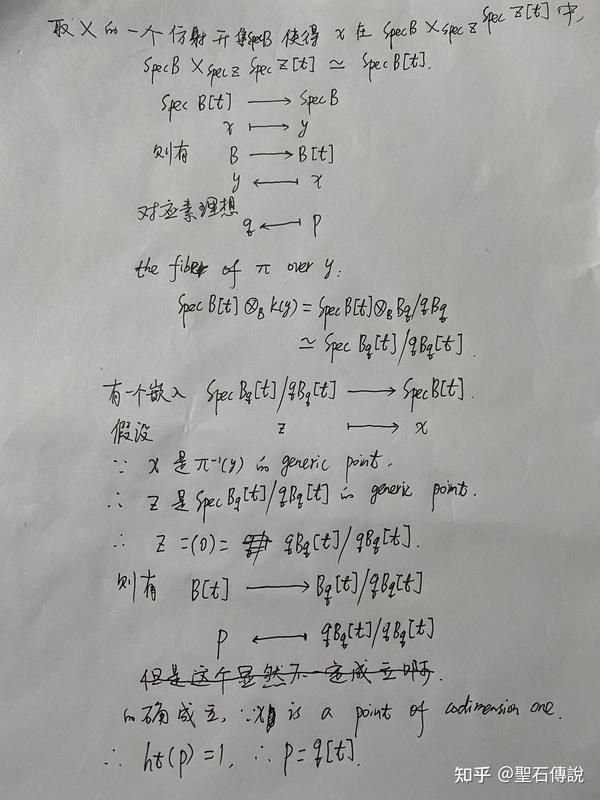 取 X 的一个仿射开集SpecB 使得 x 在 SpecB ×_{Spec Z} Spec Z[t] 中,
SpecB ×_{Spec Z} Spec Z[t] ≃ Spec B[t].
Spec B[t] ⟶ SpecB
x ⟼ y
则有 B ⟶ B[t]
y ⟵ x
对应素理想 q ⟵ p
the fiber of π over y:
Spec B[t] ⊗_B k(y) = Spec B[t] ⊗_B B_q/qB_q
≃ Spec B_q[t]/qB_q[t].
有一个嵌入 Spec B_q[t]/qB_q[t] ⟶ Spec B[t].
假设 z ⟼ x
∵ x 是 π⁻¹(y) 的 generic point.
∴ z 是 Spec B_q[t]/qB_q[t] 的 generic point.
∴ z = (0) = qB_q[t]/qB_q[t].
则有 B[t] ⟶ B_q[t]/qB_q[t]
p ⟵ qB_q[t]/qB_q[t]
但是这个显然不一定成立啊.
的确成立, ∵ x is a point of codimension one.
∴ ht(p) = 1, ∴ p = q[t].
知乎 @聖石傳說